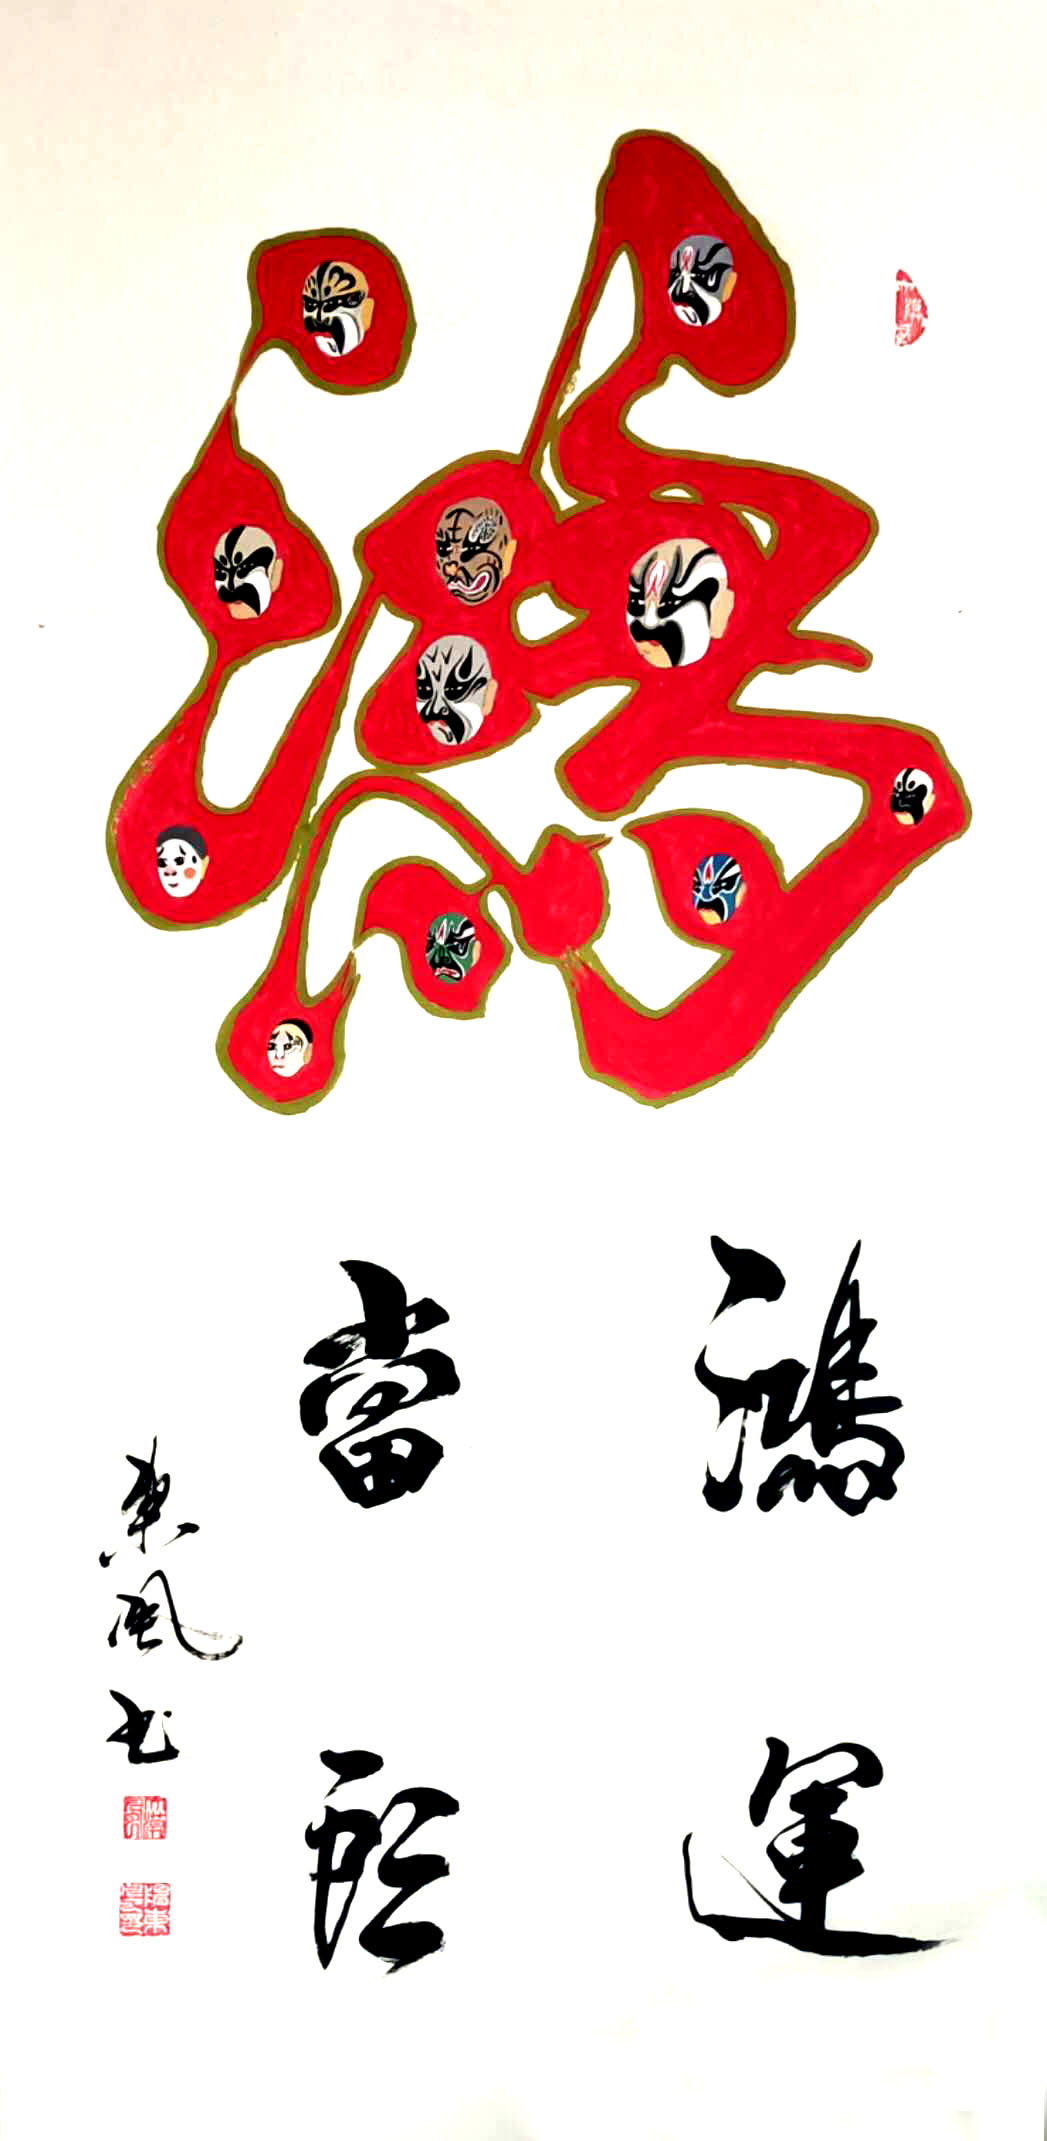 鴻
鴻運
當頭
東風书